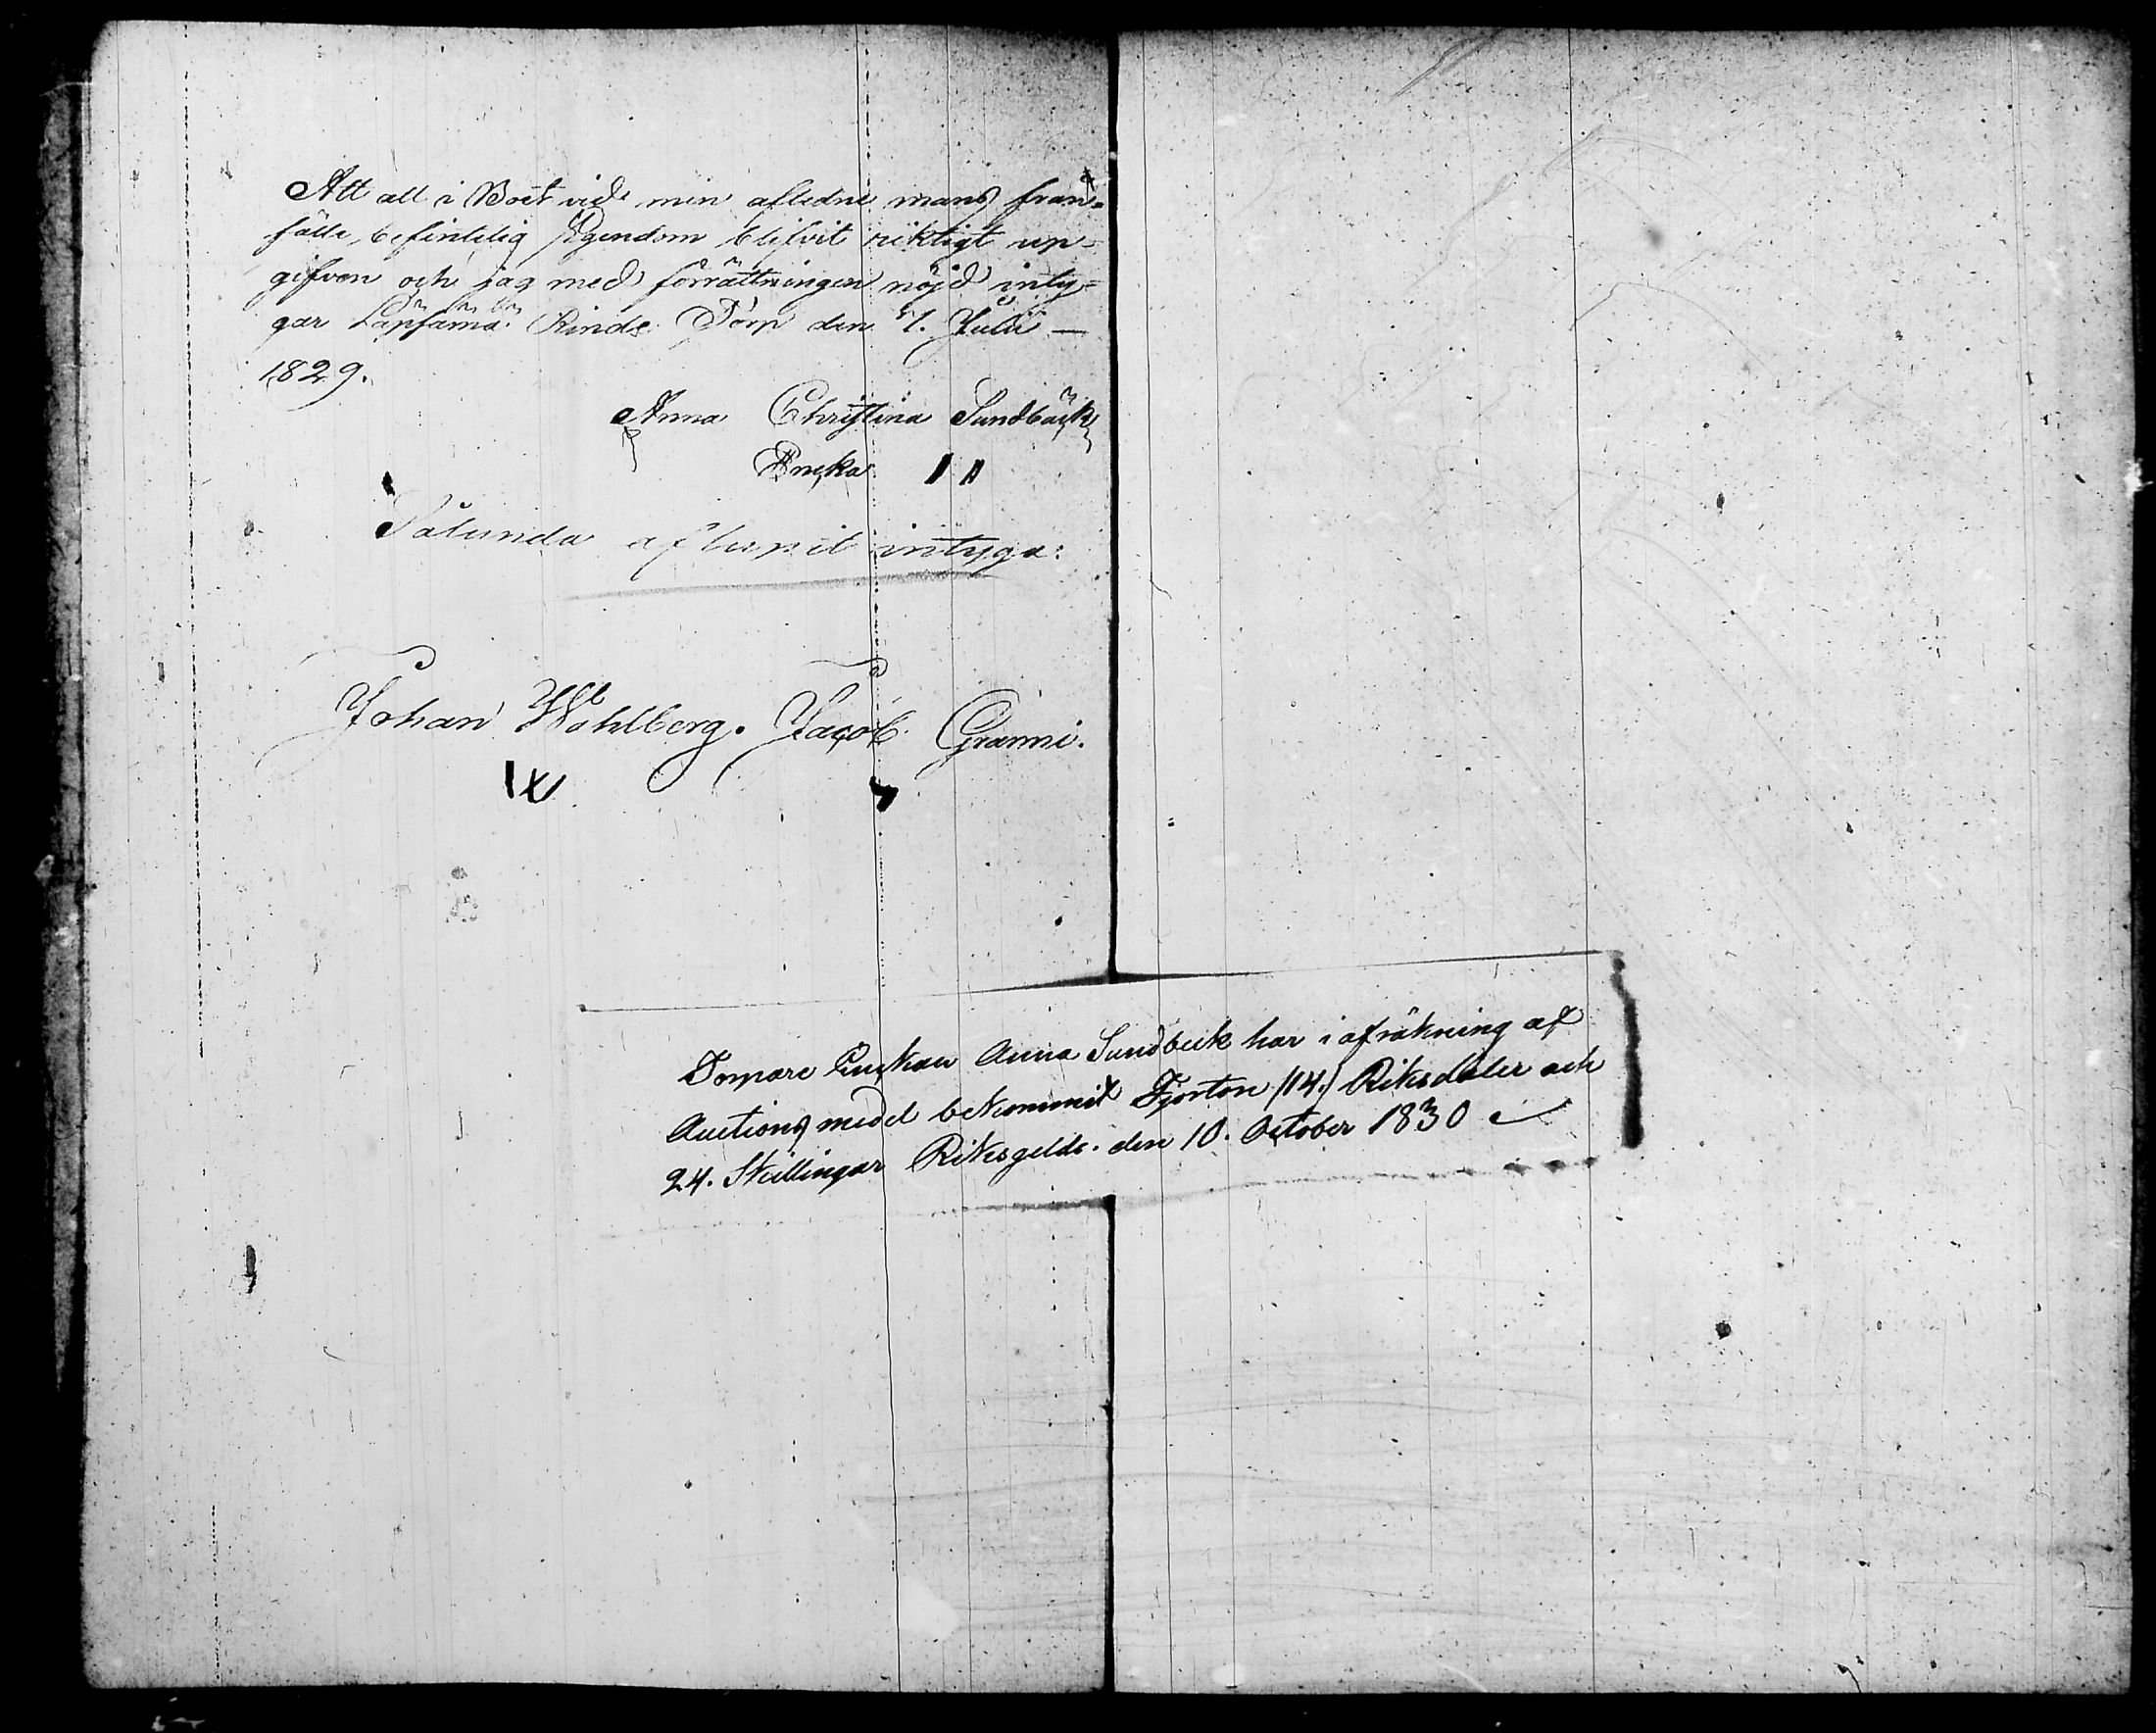 Att all i Boet vid min aflidne mans från=
fälle befintelig Egendom blifvit riktigt up=
gifven och jag med förrättningen nöjd inty=
gar Rinds Torp den 7. Julii —
1829.
Anna Christina Sundbäck
Encka
Sålunda aflupit intyga:
Johan Wahlberg. Jacob Granni.
IW
Torpare Enckan Anna Sundbeck har i afräkning af
Auctions medel bekommit Fjorton /14./ Riksdaler och
24. Skillingar Riksgelds. den 10. October 1830